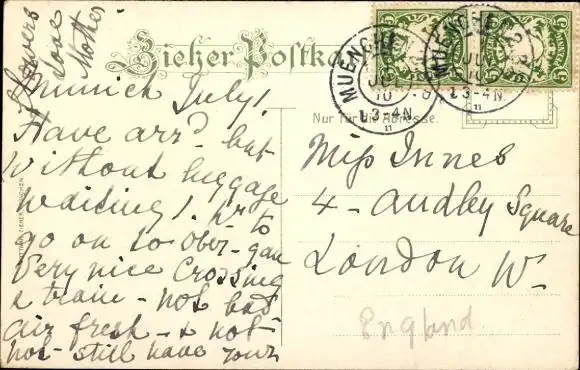 flowers
Love
Mother
Zieher Postkarte
Munich July 1.
Have arrd. but
without luggage
waiting 1. hr to
go on to Ober-gau
Very nice Crossing
& train - not bad
air fresh - & not
hot - still have your
Nur für die Adresse.
Miss Innes
4 - Audley Square
London W.
England
MUENCHEN
JUL
10
3-4N
11
MUENCHEN
JUL
3-4N
11
5
5
5
5